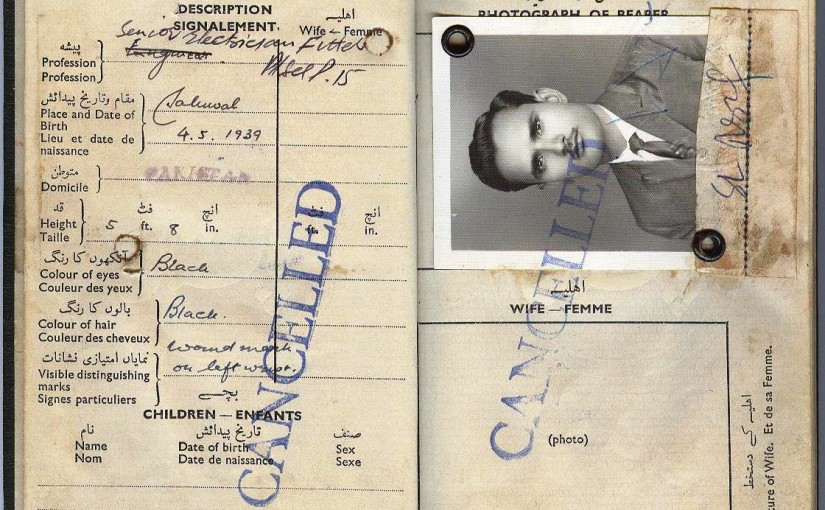 DESCRIPTION
SIGNALEMENT.
اهلیہ
Wife — Femme
Senior Electrician Fitter
پیشہ
Profession
Profession
P. 15
مقام وتاریخ پیدائش
Place and Date of
Birth
Lieu et date de
naissance
4.5.1939
متوطن
Domicile
PAKISTAN
قد
Height
Taille
فٹ
انچ
5 ft. 8 in.
فٹ
انچ
ft.
in.
آنکھوں کا رنگ
Colour of eyes
Couleur des yeux
Black
بالوں کا رنگ
Colour of hair
Couleur des cheveux
Black.
نمایاں امتیازی نشانات
Visible distinguishing
marks
Signes particuliers
wound mark
on left wrist.
بچے
CHILDREN — ENFANTS
نام
Name
Nom
تاریخ پیدائش
Date of birth
Date de naissance
صنف
Sex
Sexe
CANCELLED
PHOTOGRAPH OF BEARER
اهلیہ
WIFE — FEMME
(photo)
CANCELLED
اهلیہ کے دستخط
ture of Wife. Et de sa Femme.